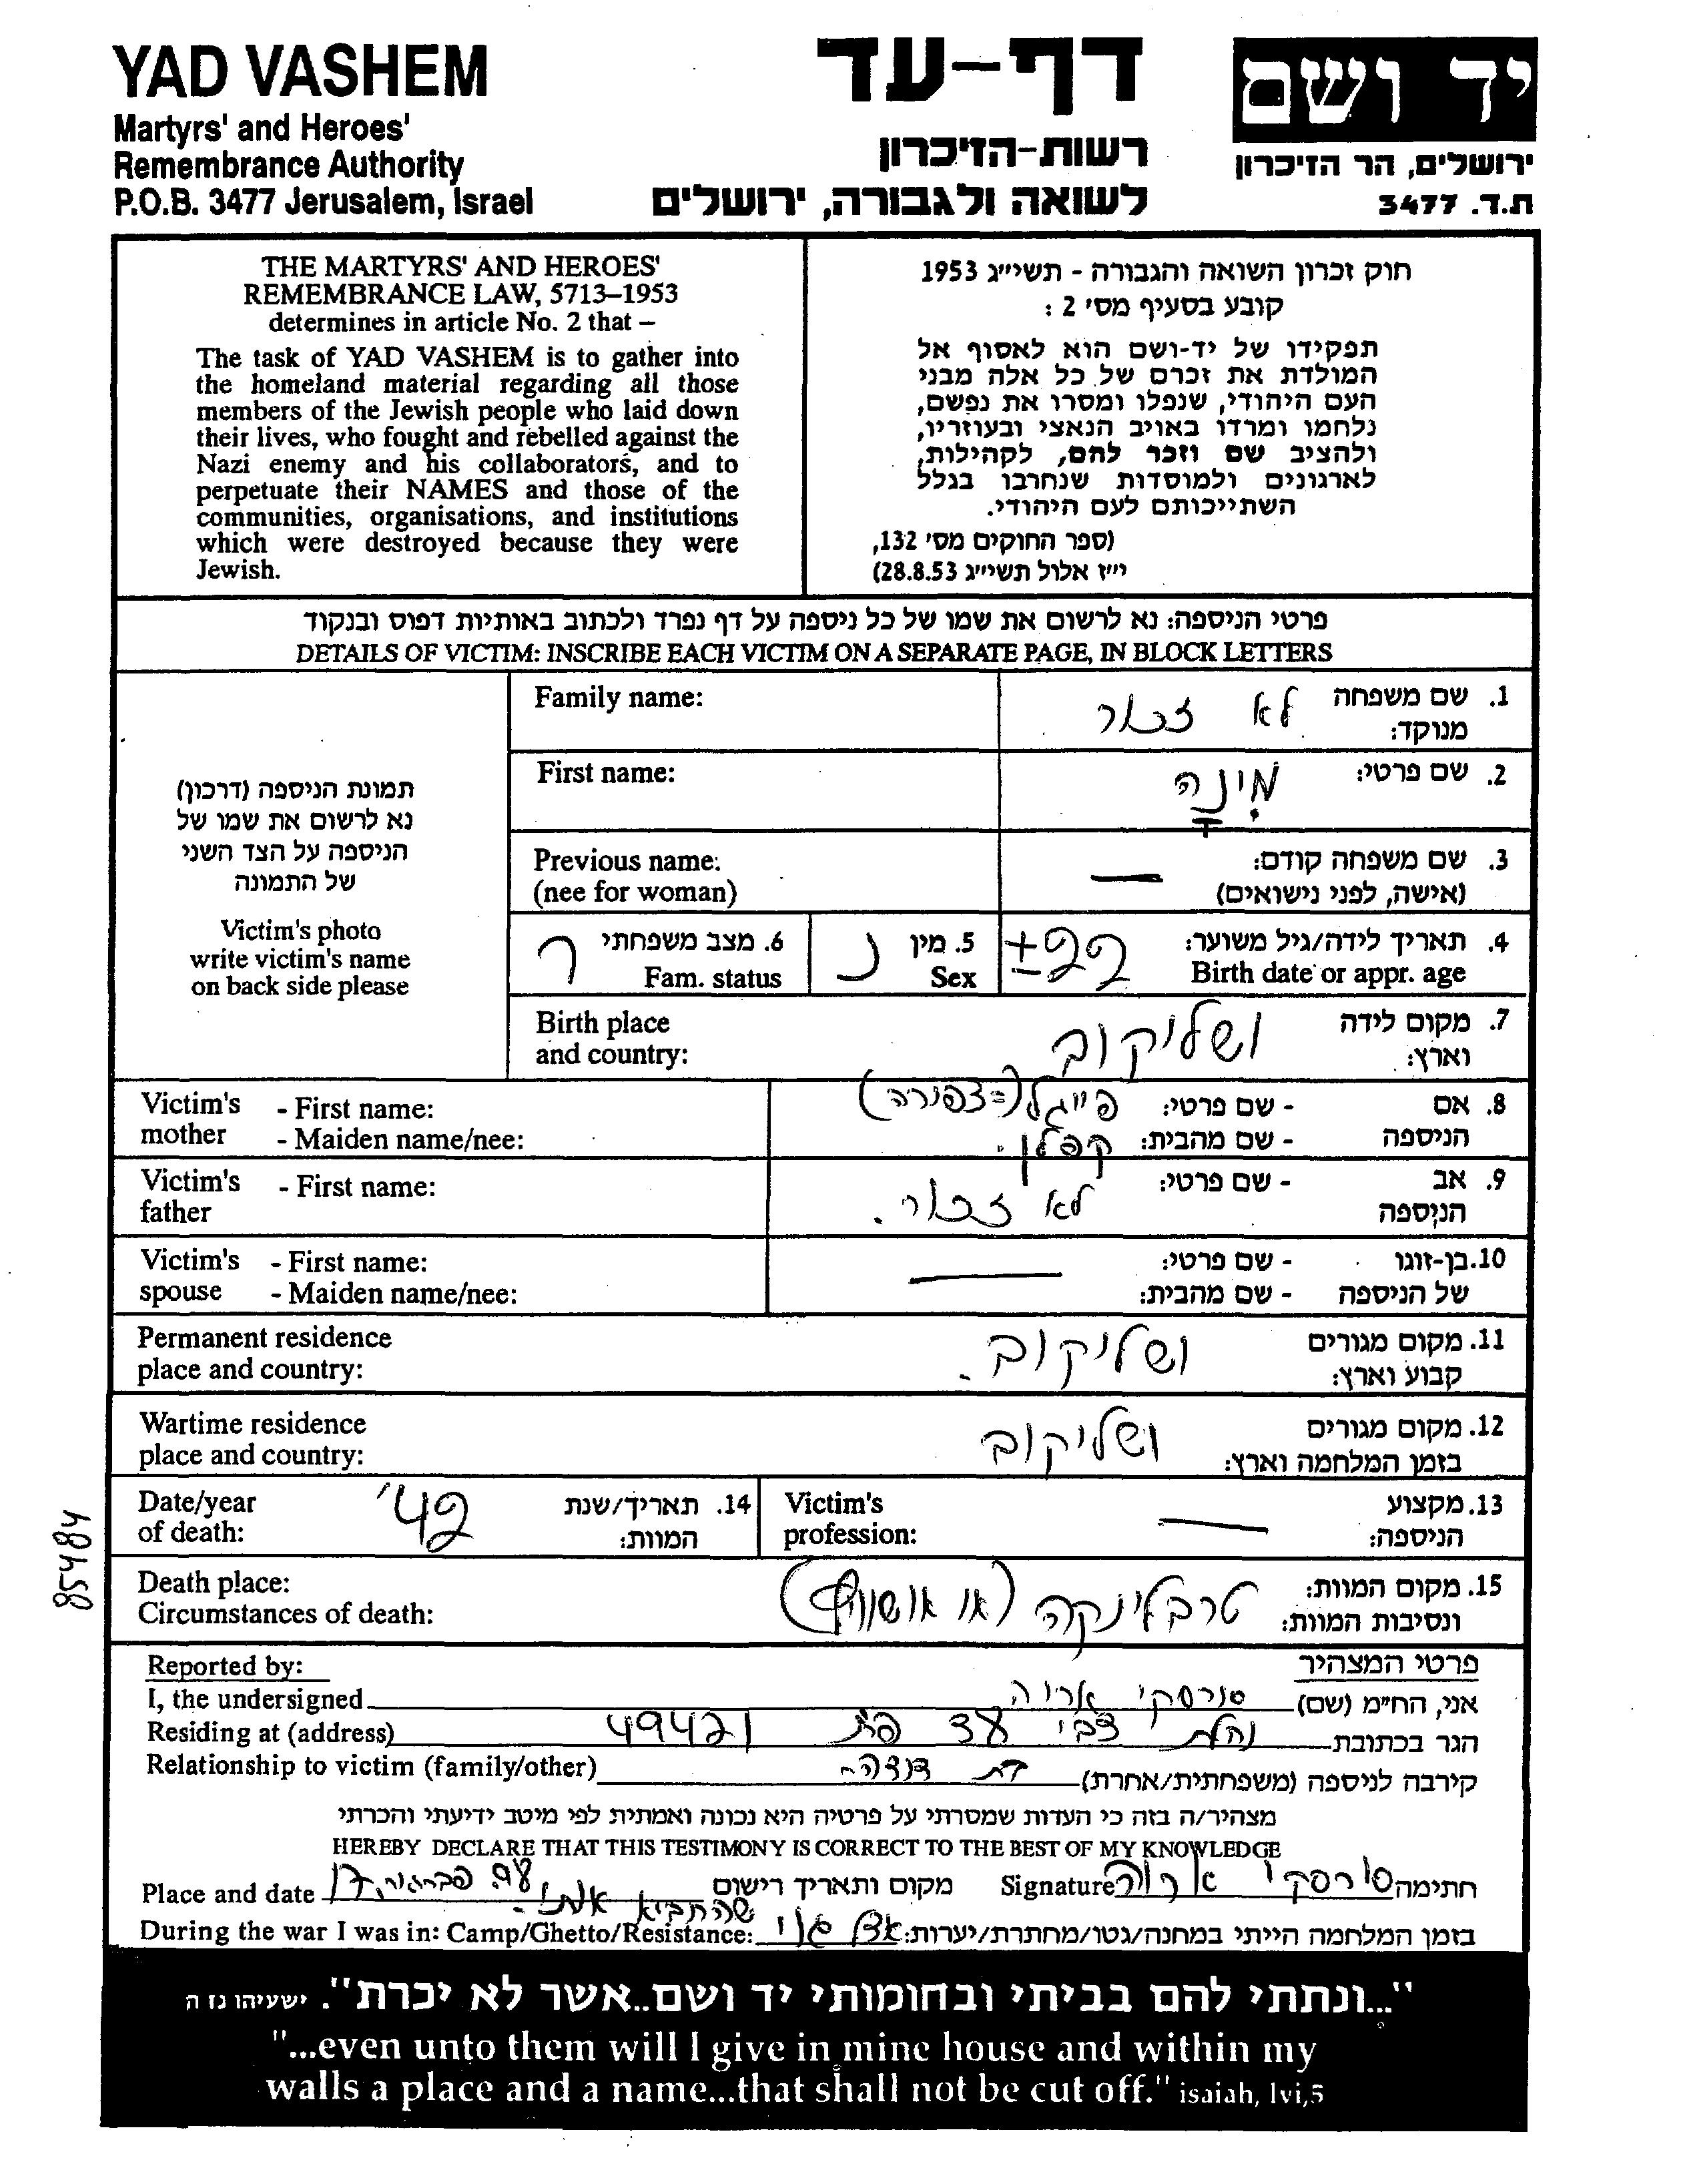 YAD VASHEM
Martyrs' and Heroes'
Remembrance Authority
P.O.B. 3477 Jerusalem, Israel
דף-עד
רשות-הזיכרון
לשואה ולגבורה, ירושלים
יד ושם
ירושלים, הר הזיכרון
ת.ד. 3477
THE MARTYRS' AND HEROES'
REMEMBRANCE LAW, 5713–1953
determines in article No. 2 that –
The task of YAD VASHEM is to gather into
the homeland material regarding all those
members of the Jewish people who laid down
their lives, who fought and rebelled against the
Nazi enemy and his collaborators, and to
perpetuate their NAMES and those of the
communities, organisations, and institutions
which were destroyed because they were
Jewish.
חוק זכרון השואה והגבורה - תשי״ג 1953
קובע בסעיף מס' 2 :
תפקידו של יד-ושם הוא לאסוף אל
המולדת את זכרם של כל אלה מבני
העם היהודי, שנפלו ומסרו את נפשם,
נלחמו ומרדו באויב הנאצי ובעוזריו,
ולהציב שם וזכר להם, לקהילות,
לארגונים ולמוסדות שנחרבו בגלל
השתייכותם לעם היהודי.
(ספר החוקים מס' 132,
י״ז אלול תשי״ג 28.8.53)
פרטי הניספה: נא לרשום את שמו של כל ניספה על דף נפרד ולכתוב באותיות דפוס ובנקוד
DETAILS OF VICTIM: INSCRIBE EACH VICTIM ON A SEPARATE PAGE, IN BLOCK LETTERS
תמונת הניספה (דרכון)
נא לרשום את שמו של
הניספה על הצד השני
של התמונה
Victim's photo
write victim's name
on back side please
Family name: לא זכור 1. שם משפחה
מנוקד:
First name: מִינָה 2. שם פרטי:
Previous name: — 3. שם משפחה קודם:
(nee for woman) (אישה, לפני נישואים)
4. תאריך לידה/גיל משוער: ±22
Birth date or appr. age
5. מין נ
Sex
6. מצב משפחתי ר
Fam. status
Birth place 7. מקום לידה
and country: ושליקוב וארץ:
Victim's - First name: פייגל (=צפורה) - שם פרטי: 8. אם
mother - Maiden name/nee: קפלן. - שם מהבית: הניספה
Victim's - First name: - שם פרטי: 9. אב
father לא זכור. הניספה
Victim's - First name: - שם פרטי: 10. בן-זוגו
spouse - Maiden name/nee: — - שם מהבית: של הניספה
Permanent residence ושליקוב. 11. מקום מגורים
place and country: קבוע וארץ:
Wartime residence ושליקוב 12. מקום מגורים
place and country: בזמן המלחמה וארץ:
Date/year '42 14. תאריך/שנת
of death: המוות:
Victim's — 13. מקצוע
profession: הניספה:
Death place: טרבלינקה (או אושוויץ) 15. מקום המוות:
Circumstances of death: ונסיבות המוות:
85484
Reported by: פרטי המצהיר
I, the undersigned סורסקי אריה אני, הח״מ (שם)
Residing at (address) נהלת צבי 38 פ״ת 49421 הגר בכתובת
Relationship to victim (family/other) בת דודה קירבה לניספה (משפחתית/אחרת)
מצהיר/ה בזה כי העדות שמסרתי על פרטיה היא נכונה ואמתית לפי מיטב ידיעתי והכרתי
HEREBY DECLARE THAT THIS TESTIMONY IS CORRECT TO THE BEST OF MY KNOWLEDGE
Place and date מקום ותאריך רישום Signature סורסקי אריה חתימה
During the war I was in: Camp/Ghetto/Resistance: בזמן המלחמה הייתי במחנה/גטו/מחתרת/יערות:
"...ונתתי להם בביתי ובחומותי יד ושם..אשר לא יכרת". ישעיהו נז ה
"...even unto them will I give in mine house and within my
walls a place and a name...that shall not be cut off." isaiah, lvi,5